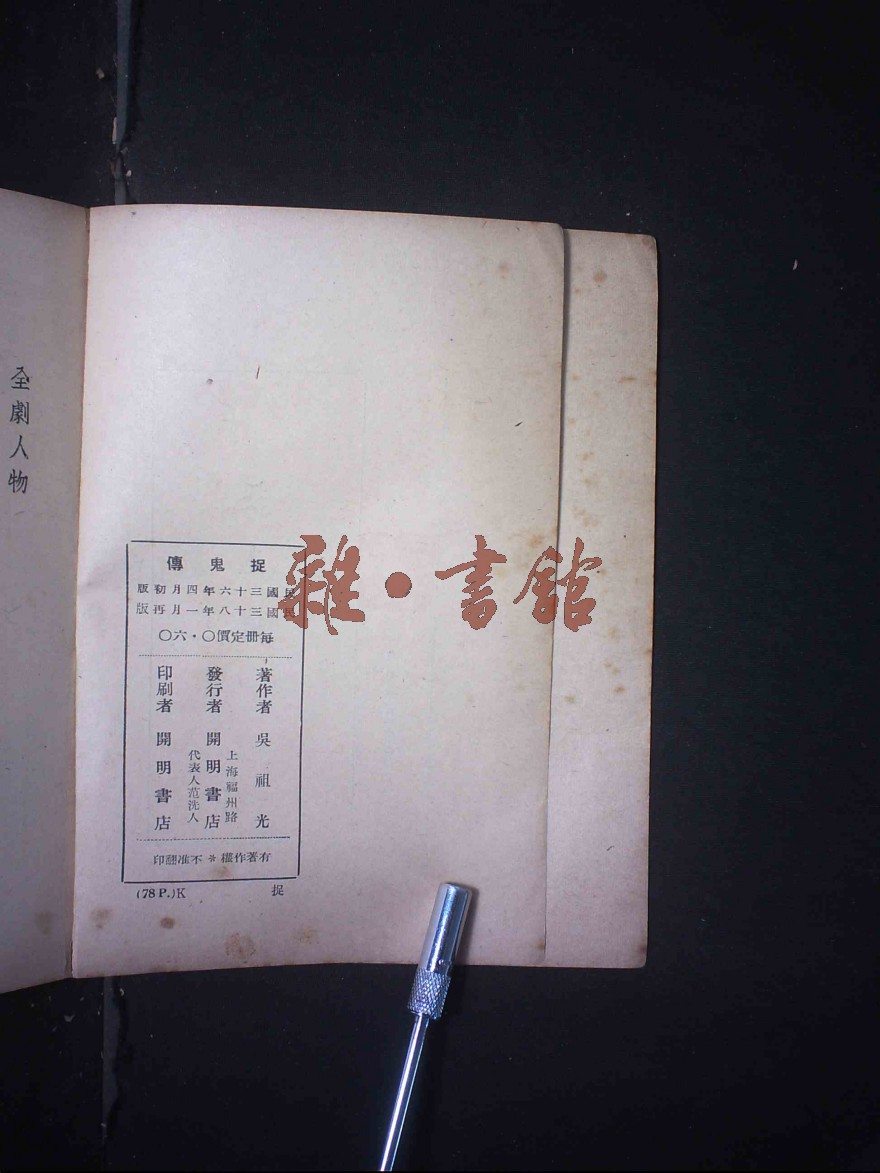 全劇人物
捉鬼傳
民國三十六年四月初版
民國三十八年一月再版
每冊定價〇·六〇
著作者 吳祖光
上海福州路
發行者 開明書店
代表人范洗人
印刷者 開明書店
有著作權＊不准翻印
(78 P.)K
捉
雜·書館